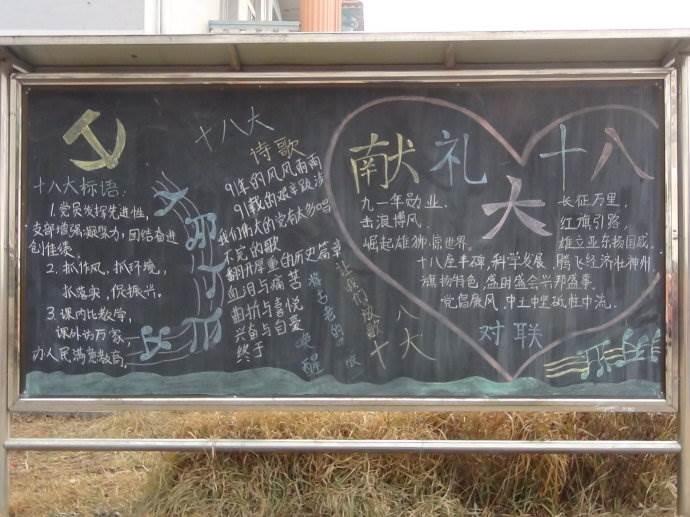 十八大标语:
1.党员发挥先进性,
支部增强凝聚力,团结奋进
创佳绩。
2.抓作风,抓环境,
抓落实,促振兴。
3.课内比教学,
课外访万家,
办人民满意教育。
十八大
诗歌
91年的风风雨雨
91载的艰辛跋涉
我们伟大的党有太多唱
不完的歌
翻开厚重的历史篇章
血泪与痛苦
曲折与喜悦
兴奋与自豪
终于
唤醒
让我们放歌
十八大
献礼十八
大
九一年勋业,
击浪搏风。
崛起雄狮惊世界。
长征万里,
红旗引路,
雄立亚东扬国威。
十八座丰碑,科学发展,腾飞经济壮神州。
旗扬特色,盛世盛会兴邦盛事。
党倡廉风,中土中坚砥柱中流。
对联